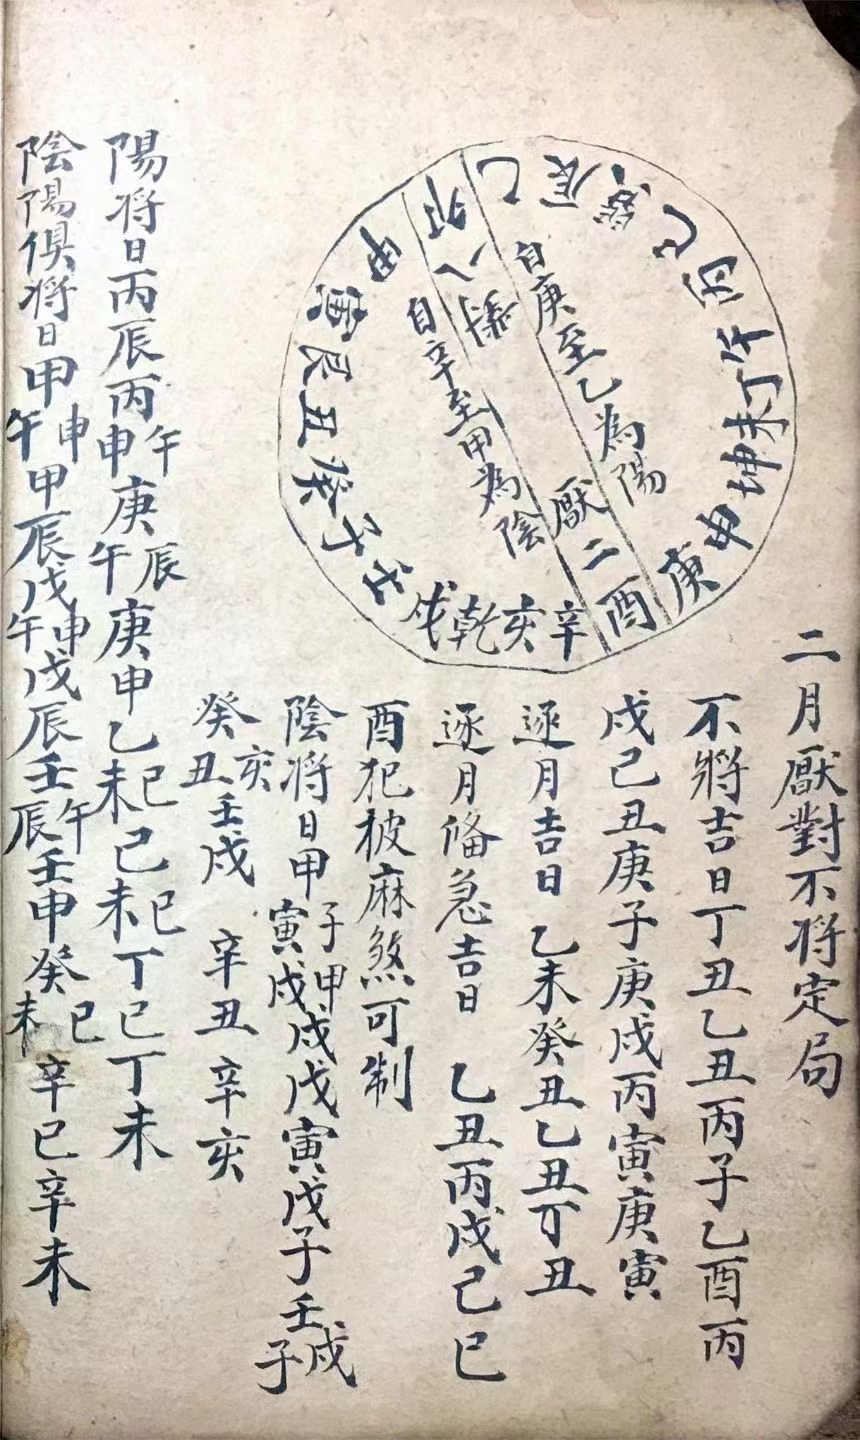 二月厭對不将定局
卯乙辰巽巳丙午丁未坤申庚酉辛亥乾戌壬子癸丑艮寅甲
自庚至乙為陽
八
厭二
自辛至甲為陰
不將吉日丁丑乙丑丙子乙酉丙
戌己丑庚子庚戌丙寅庚寅
逐月吉日 乙未癸丑乙丑丁丑
逐月俻急吉日 乙丑丙戌己巳
酉犯披麻煞可制
陰将日甲子寅甲戌戌戊寅戊子壬戌子
癸亥丑壬戌 辛丑 辛亥
陽将日丙辰丙午申庚辰午庚申乙巳未己巳未丁巳丁未
陰陽俱将日甲申午甲辰戊申午戊辰壬午辰壬申癸巳未辛巳辛未